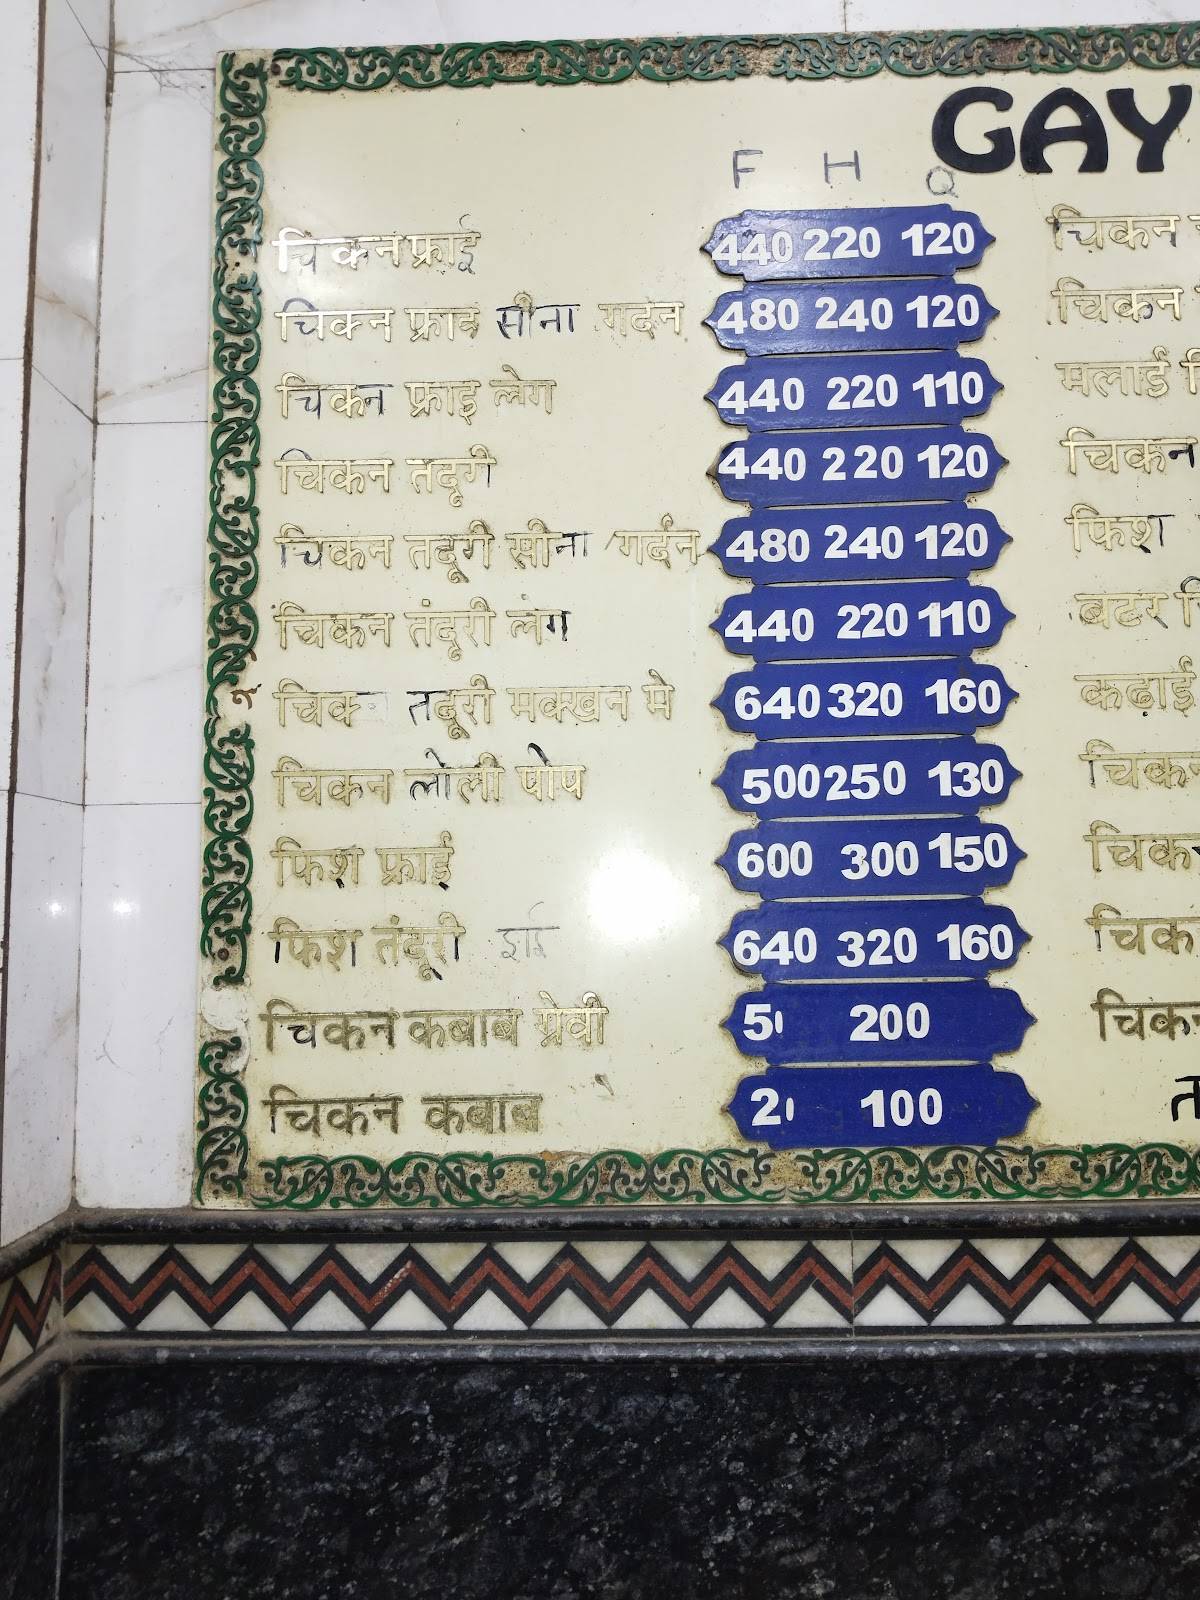 GAY
F H Q
चिकन फ्राई 440 220 120
चिकन फ्राई सीना गर्दन 480 240 120
चिकन फ्राइ लेग 440 220 110
चिकन तंदूरी 440 220 120
चिकन तंदूरी सीना गर्दन 480 240 120
चिकन तंदूरी लेग 440 220 110
चिकन तंदूरी मक्खन मे 640 320 160
चिकन लोली पोप 500 250 130
फिश फ्राई 600 300 150
फिश तंदूरी 640 320 160
चिकन कबाब ग्रेवी 200
चिकन कबाब 100
चिकन
चिकन
मलाई
चिकन
फिश
बटर
कढ़ाई
चिकन
चिकन
चिकन
चिकन